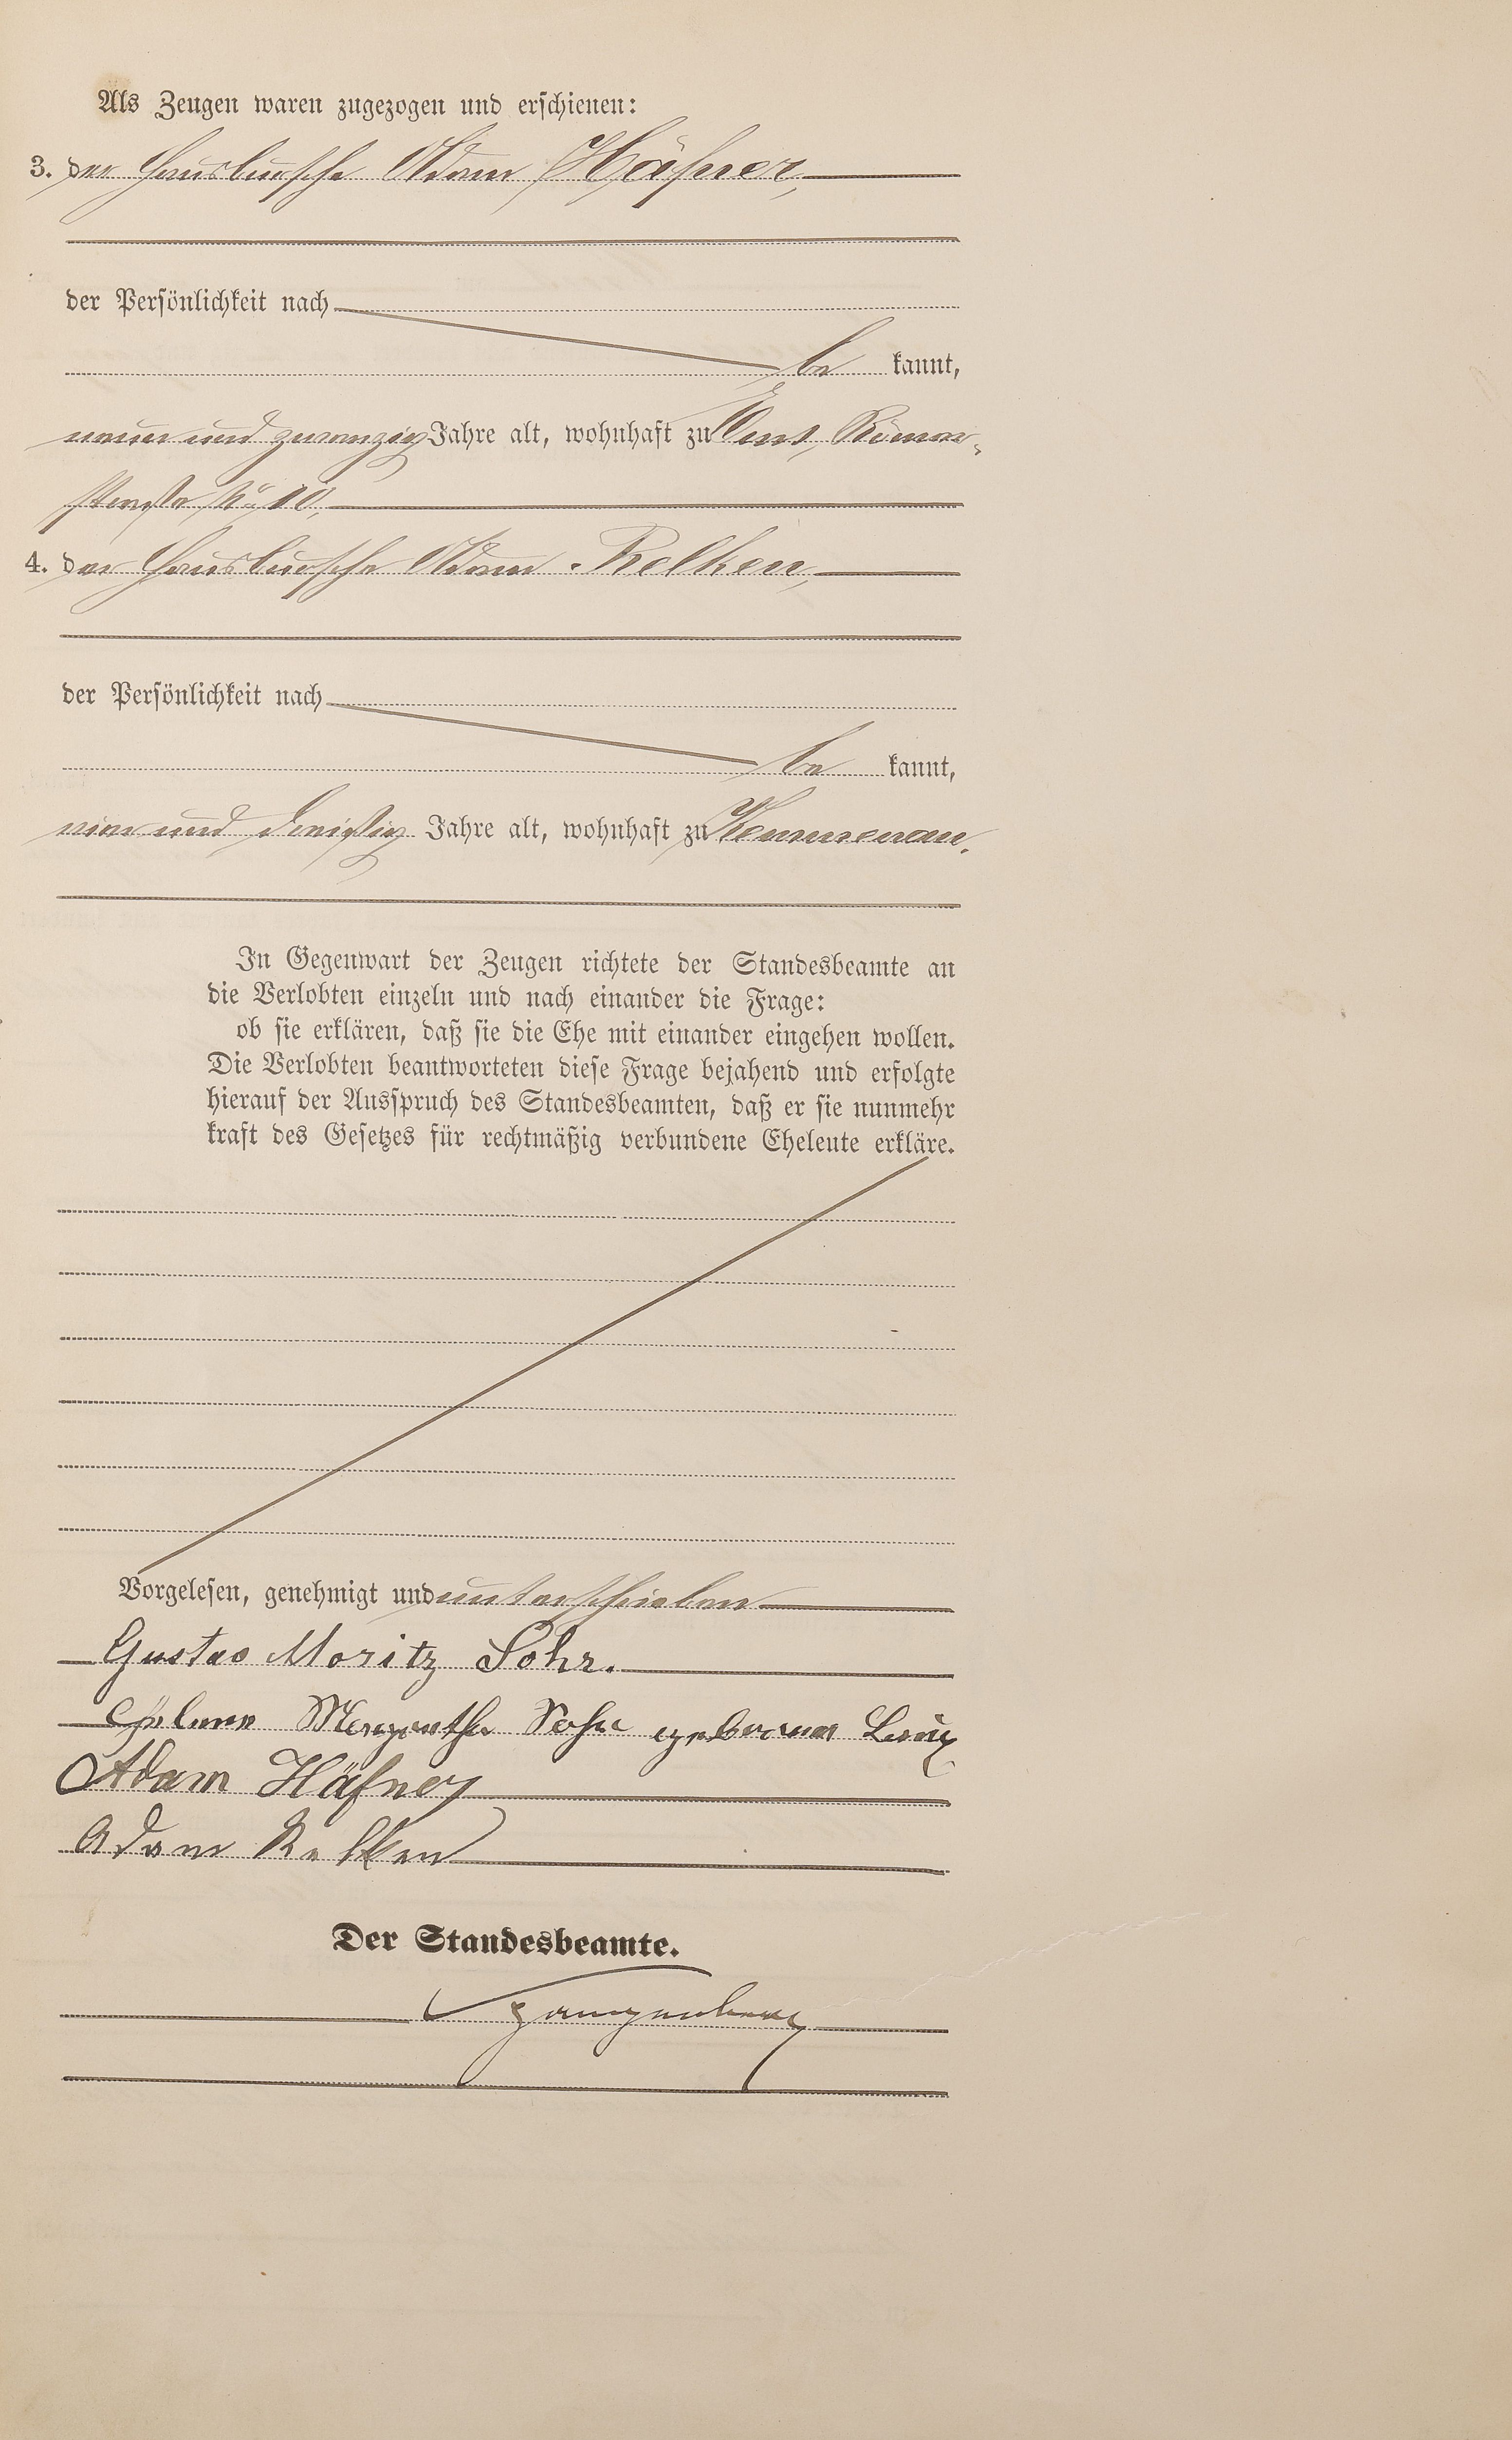 Als Zeugen waren zugezogen und erschienen:
3. der Hausbursche Adam Häfner,
der Persönlichkeit nach
be kannt,
neun und zwanzig Jahre alt, wohnhaft zu Ems, Römer-
straße No 10,
4. der Hausbursche Adam Relken,
der Persönlichkeit nach
be kannt,
vier und dreißig Jahre alt, wohnhaft zu Kemmenau.
In Gegenwart der Zeugen richtete der Standesbeamte an
die Verlobten einzeln und nach einander die Frage:
ob sie erklären, daß sie die Ehe mit einander eingehen wollen.
Die Verlobten beantworteten diese Frage bejahend und erfolgte
hierauf der Ausspruch des Standesbeamten, daß er sie nunmehr
kraft des Gesetzes für rechtmäßig verbundene Eheleute erkläre.
Vorgelesen, genehmigt und unterschrieben
Gustav Moritz Sohr.
Margaretha Sohr geborene
Adam Häfner
Adam Relken
Der Standesbeamte.